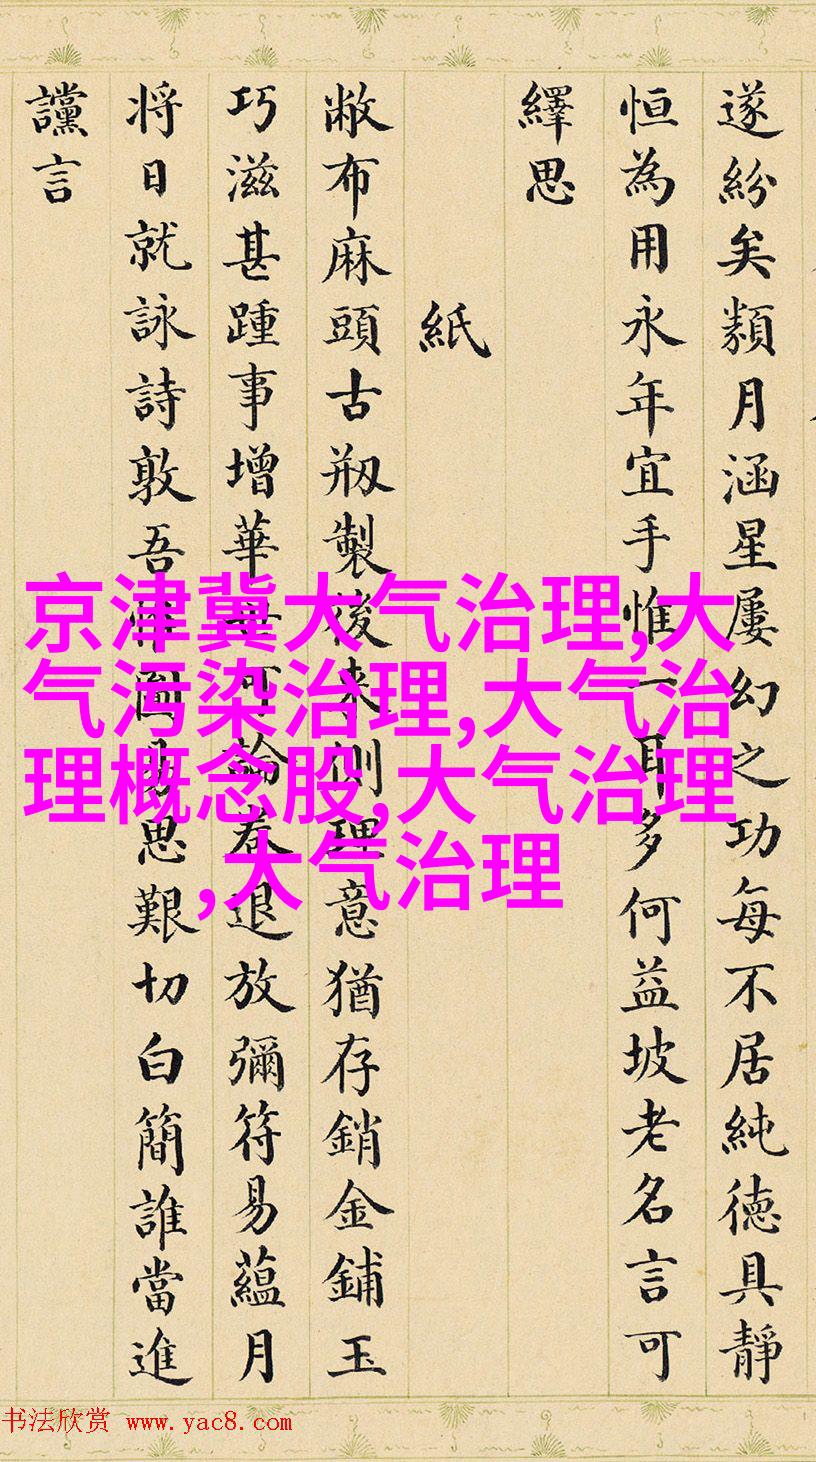 遂紛矣類月涵星屢幻之功每不居純德具靜
恒為用永年宜手惟一耳多何益坡老名言可
繹思
紙
敝布麻頭古剏製後來側理意猶存銷金鋪玉
巧滋甚踵事增華可輪卷退放彌符易蘊月
将日就詠詩敦吾易思艱切白簡誰當進
讜言
京津冀大气治理,大
气污染治理,大气治
理概念股,大气治理
,大气治理
书法欣赏 www.yac8.com